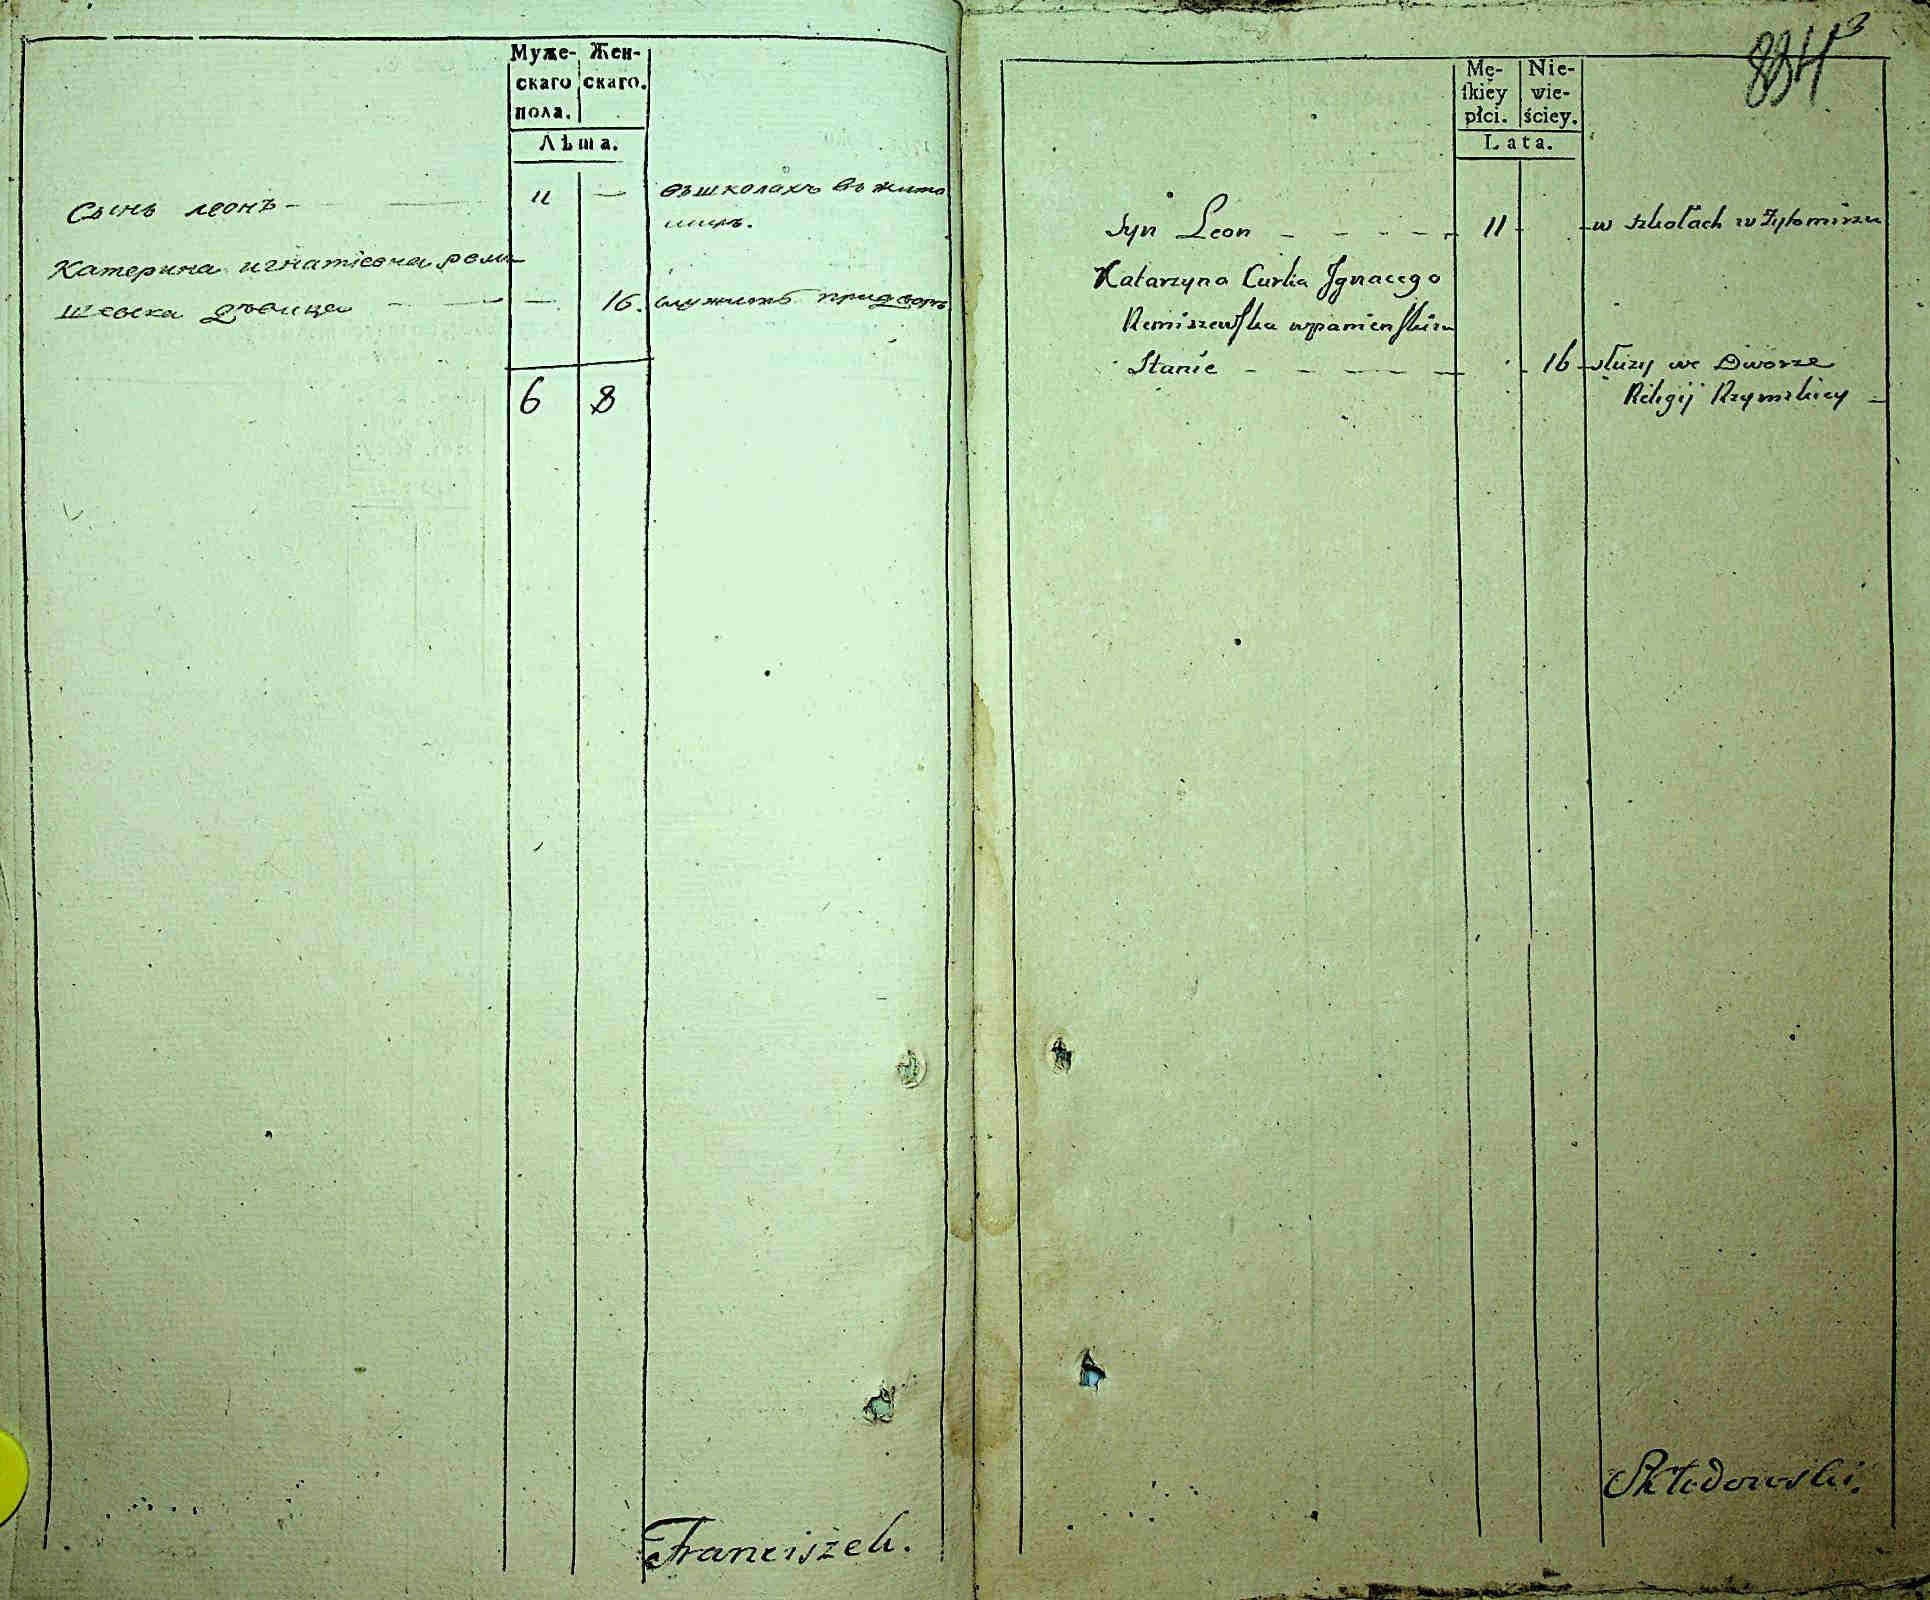 Муже- Жен-
скаго скаго.
пола.
Лѣта.
Сынъ леонъ - 11 — въ школахъ въ жито
мирѣ.
Катерина игнатіевна реми
шевска дѣвица — 16. служитъ при дворѣ
6 8
Franciszek.
834
3
Mę- Nie-
skiéy wie-
płci. ściey.
Lata.
Syn Leon - - - - - 11 - w szkołach w Żytomirzu
Katarzyna Curka Jgnacego
Remiszewska w panieńskim
Stanie - - - - - 16 służy we Dworze
Religij Rzymskiey
Skłodowski.